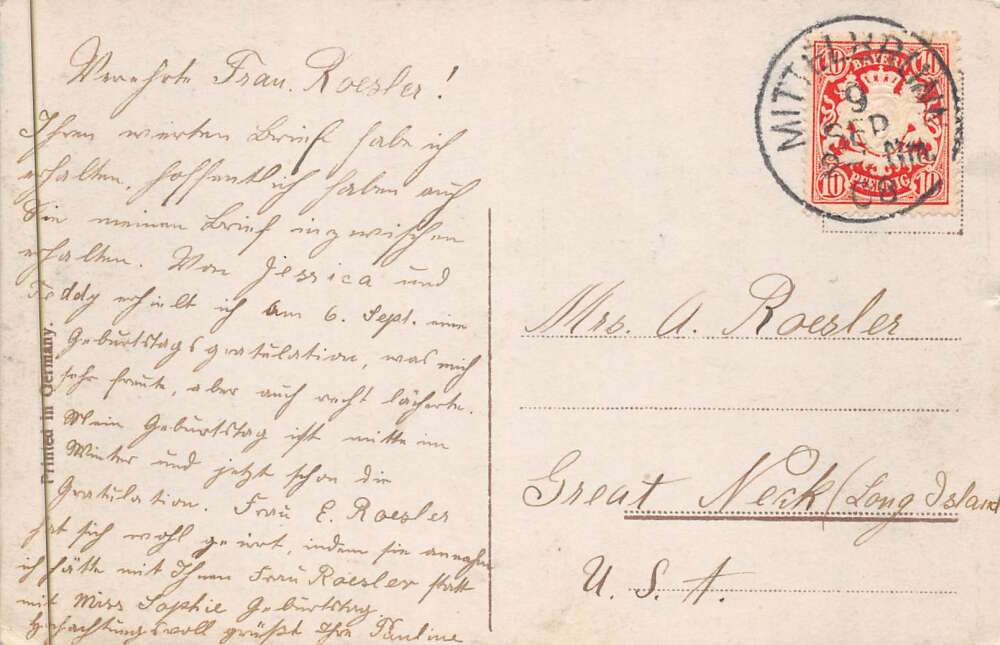 Verehrte Frau. Roesler!
Ihren werten Brief habe ich
erhalten, hoffentlich haben auch
Sie meinen Brief inzwischen
erhalten. Von Jessica und
Teddy erhielt ich am 6. Sept. eine
Geburtstagsgratulation, was mich
sehr freute, aber auch recht lächerte.
Mein Geburtstag ist mitte im
Winter und jetzt schon die
Gratulation. Frau E. Roesler
hat sich wohl geirrt, indem sie annahm
ich hätte mit Ihnen Frau Roesler statt
mit Miss Sophie Geburtstag.
Hochachtungsvoll grüßt Ihre Pauline
Printed in Germany.
BAYERN
10 10
PFENNIG
10 10
9
SEP
Nm.
09
Mrs. A. Roesler
Great Neck (Long Island
U. S. A.